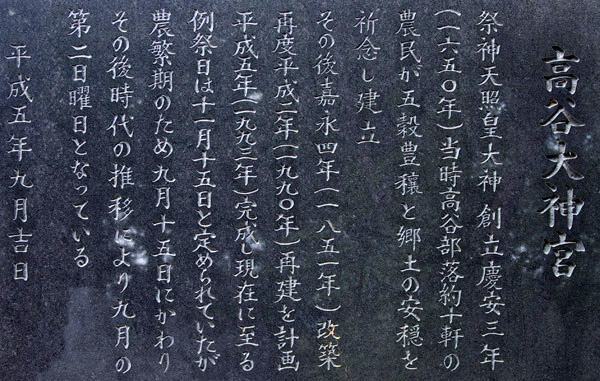 高谷大神宮
祭神天照皇大神 創立慶安三年
(一六五〇年)当時高谷部落約十軒の
農民が五穀豊穣と郷土の安穏を
祈念し建立
その後嘉永四年(一八五一年)改築
再度平成二年(一九九〇年)再建を計画
平成五年(一九九三年)完成し現在に至る
例祭日は十一月十五日と定められていたが
農繁期のため九月十五日にかわり
その後時代の推移により九月の
第二日曜日となっている
平成五年九月吉日